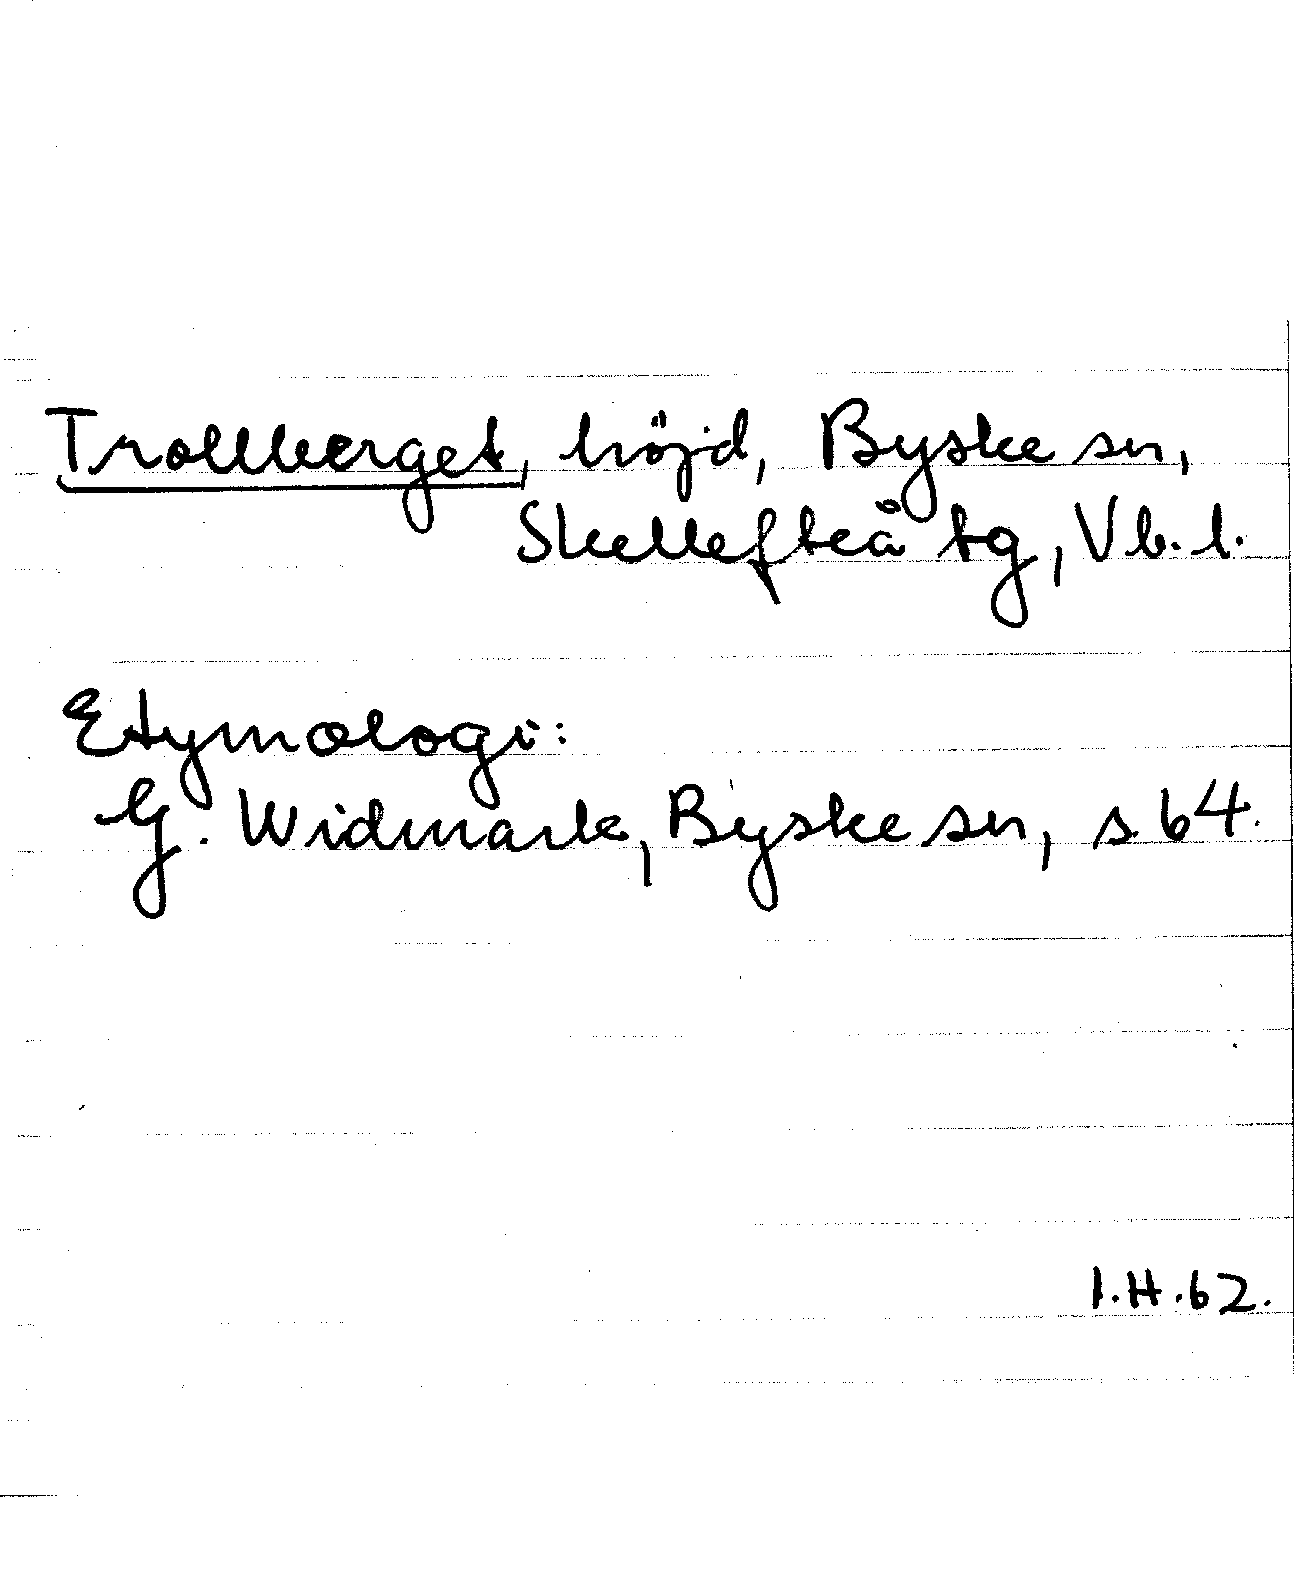 Trollberget, höjd, Byske sn,
Skellefteå tg, Vb. l.
Etymologi:
G. Widmark, Byske sn, s. 64.
I.H. 62.